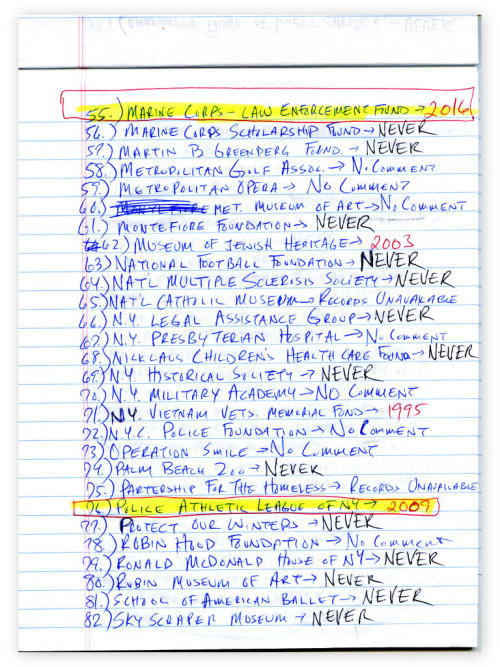 55.) MARINE CORPS - LAW ENFORCEMENT FUND → 2016
56.) MARINE CORPS SCHOLARSHIP FUND → NEVER
57.) MARTIN B GREENBERG FOUND. → NEVER
58.) METROPOLITAN GOLF ASSOC. → NO COMMENT
59.) METROPOLITAN OPERA → NO COMMENT
60.) MET. MUSEUM OF ART → NO COMMENT
61.) MONTEFIORE FOUNDATION → NEVER
62) MUSEUM OF JEWISH HERITAGE → 2003
63) NATIONAL FOOTBALL FOUNDATION → NEVER
64) NAT'L MULTIPLE SCLEROSIS SOCIETY → NEVER
65) NAT'L CATHOLIC MUSEUM → RECORDS UNAVAILABLE
66.) N.Y. LEGAL ASSISTANCE GROUP → NEVER
67.) N.Y. PRESBYTERIAN HOSPITAL → NO COMMENT
68.) NICKLAUS CHILDREN'S HEALTH CARE FOUND → NEVER
69.) N.Y. HISTORICAL SOCIETY → NEVER
70.) N.Y. MILITARY ACADEMY → NO COMMENT
71.) N.Y. VIETNAM VETS. MEMORIAL FUND → 1995
72.) N.Y.C. POLICE FOUNDATION → NO COMMENT
73.) OPERATION SMILE → NO COMMENT
74.) PALM BEACH ZOO → NEVER
75.) PARTERSHIP FOR THE HOMELESS → RECORDS UNAVAILABLE
76.) POLICE ATHLETIC LEAGUE OF NY → 2009
77.) PROTECT OUR WINTERS → NEVER
78.) ROBIN HOOD FOUNDATION → NO COMMENT
79.) RONALD MCDONALD HOUSE OF NY → NEVER
80.) RUBIN MUSEUM OF ART → NEVER
81.) SCHOOL OF AMERICAN BALLET → NEVER
82.) SKY SCRAPER MUSEUM → NEVER